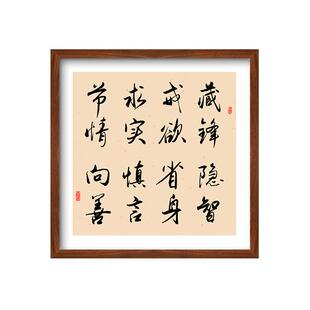 藏锋隐智
戒欲省身
求实慎言
节情向善